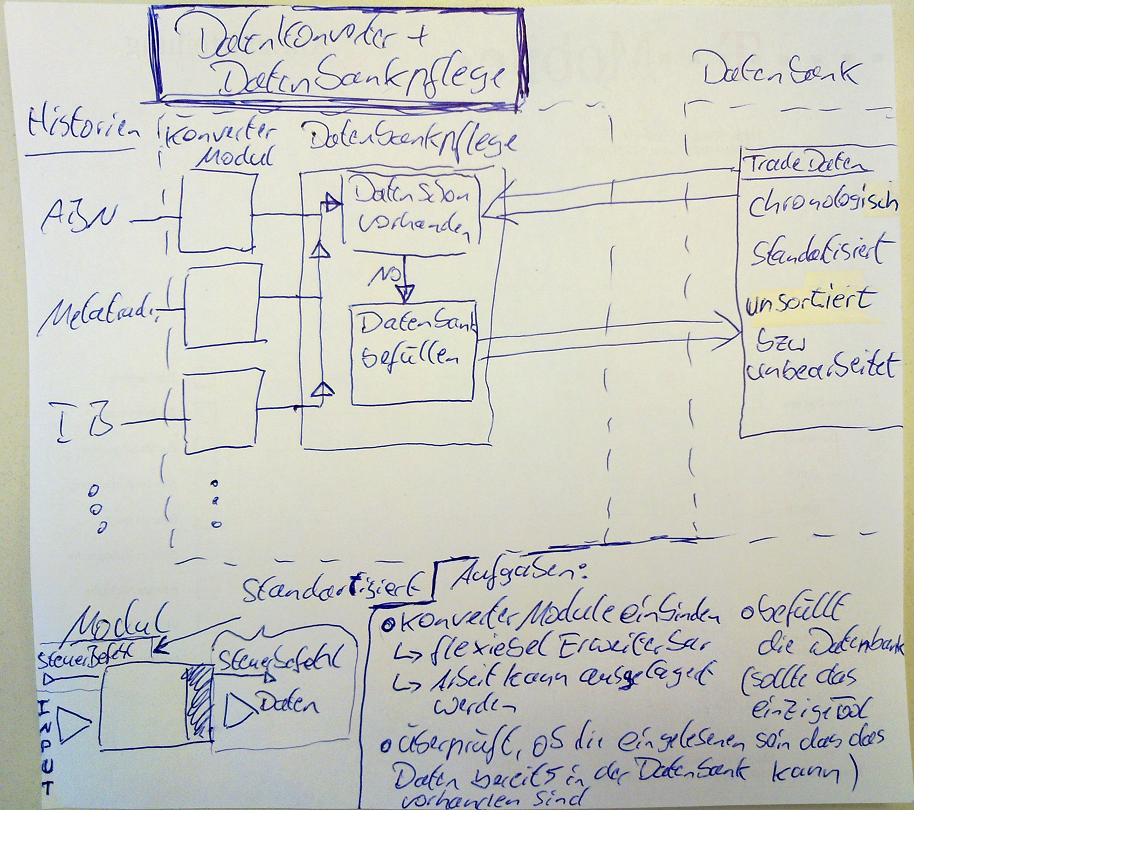 Datenkonverter +
Datenbankpflege
Datenbank
Historien
Konverter
Modul
Datenbankpflege
ABN
Metatrad.
IB
Daten schon
vorhanden
NO
Datenbank
befüllen
TradeDaten
chronologisch
Standatisiert
unsortiert
bzw
unbearbeitet
Standartisiert
Modul
SteuerBefehl
INPUT
Steuerbefehl
Daten
Aufgaben:
Konverter Module einbinden
↳ flexiebel Erweiterbar
↳ Arbeit kann ausgelagert
werden
Überprüft, ob die eingelesenen
Daten bereits in der Datenbank
vorhanden sind
befüllt
die Datenbank
(sollte das
einzige Tool
sein das das
kann)